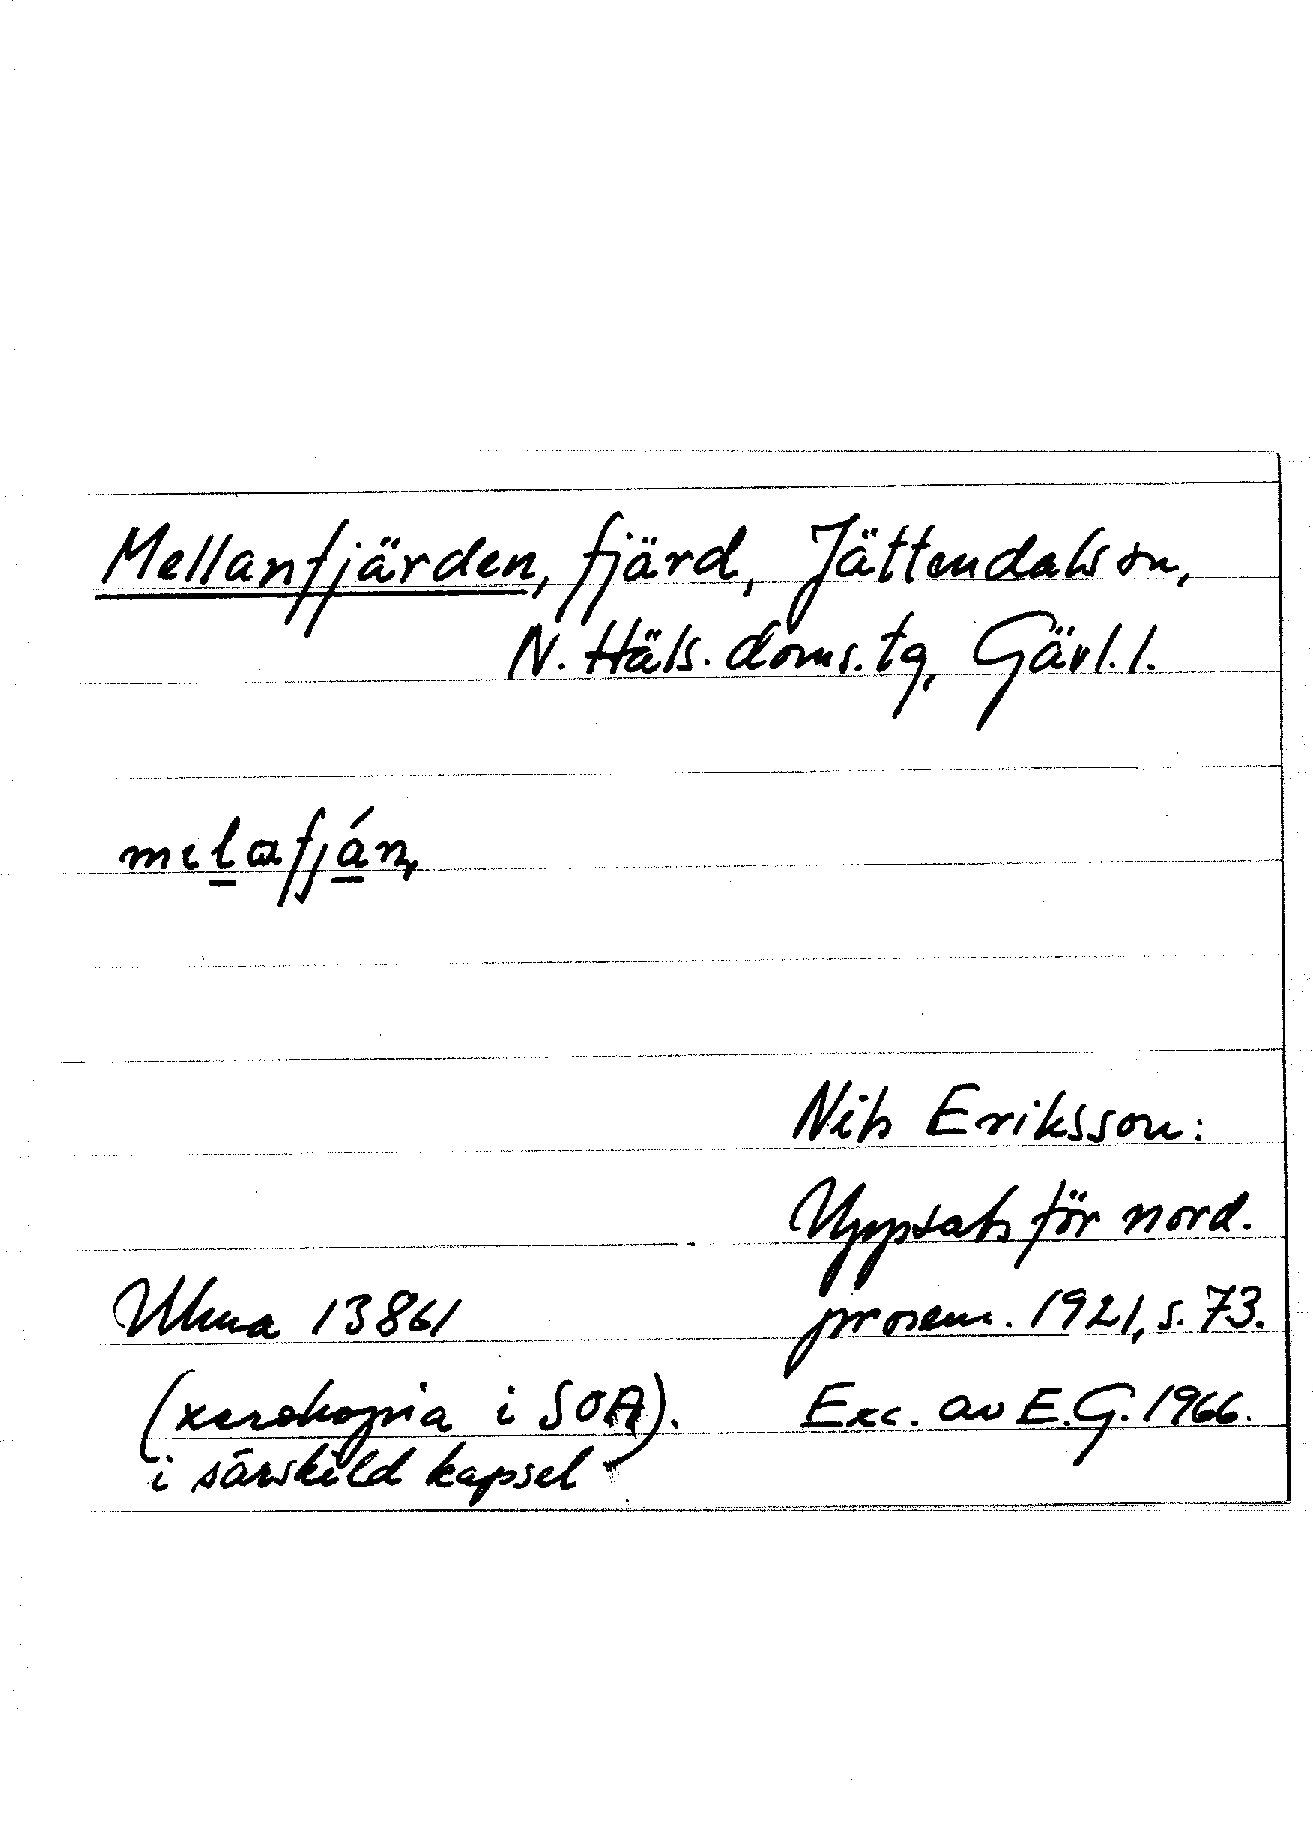 Mellanfjärden, fjärd, Jättendals sn,
N. Häls. doms. tg, Gävl. l.
melafján,
Nils Eriksson:
Uppsats för nord.
Ulma 13861 prosem. 1921, s. 73.
(xerokopia i SOA). Exc. av E. G. 1966.
i särskild kapsel